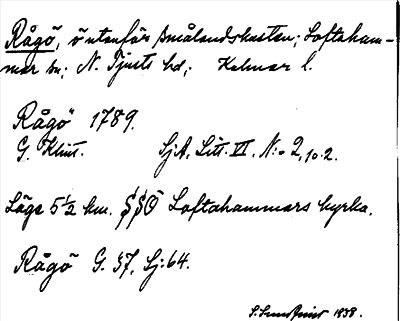 Rågö, ö utanför Smålandskusten; Loftaham-
mar sn; N. Tjusts hd; Kalmar l.
Rågö 1789.
G. Klint. SjA, Litt. VI. N:o 2, 10.2.
Läge 5½ km. SSÖ Loftahammars kyrka.
Rågö G. 37, Sj: 64.
1938.